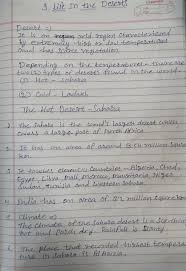 9. Life In the Deserts
Desert =>
It is an arid region characterised
by extremely high or low temperatures
and has scarce vegetation.
Depending on the temperature - there are
two (2) types of deserts found in the world -
(1) Hot - Sahara
(2) Cold - Ladakh
The Hot Desert - Sahara
The Sahara is the world's largest desert which
covers a large part of North Africa.
It has an area of around 8.54 million square
km.
It touches eleven countries - Algeria, Chad,
Egypt, Libya, Mali, Morocco, Mauritania, Niger,
Sudan, Tunisia and Western Sahara.
India has an area of 3.2 million square km
Climate =>
The climate of the Sahara desert is
hot and dry. Rainfall is
The place that recorded highest temperature
in Sahara is Al Azizia.